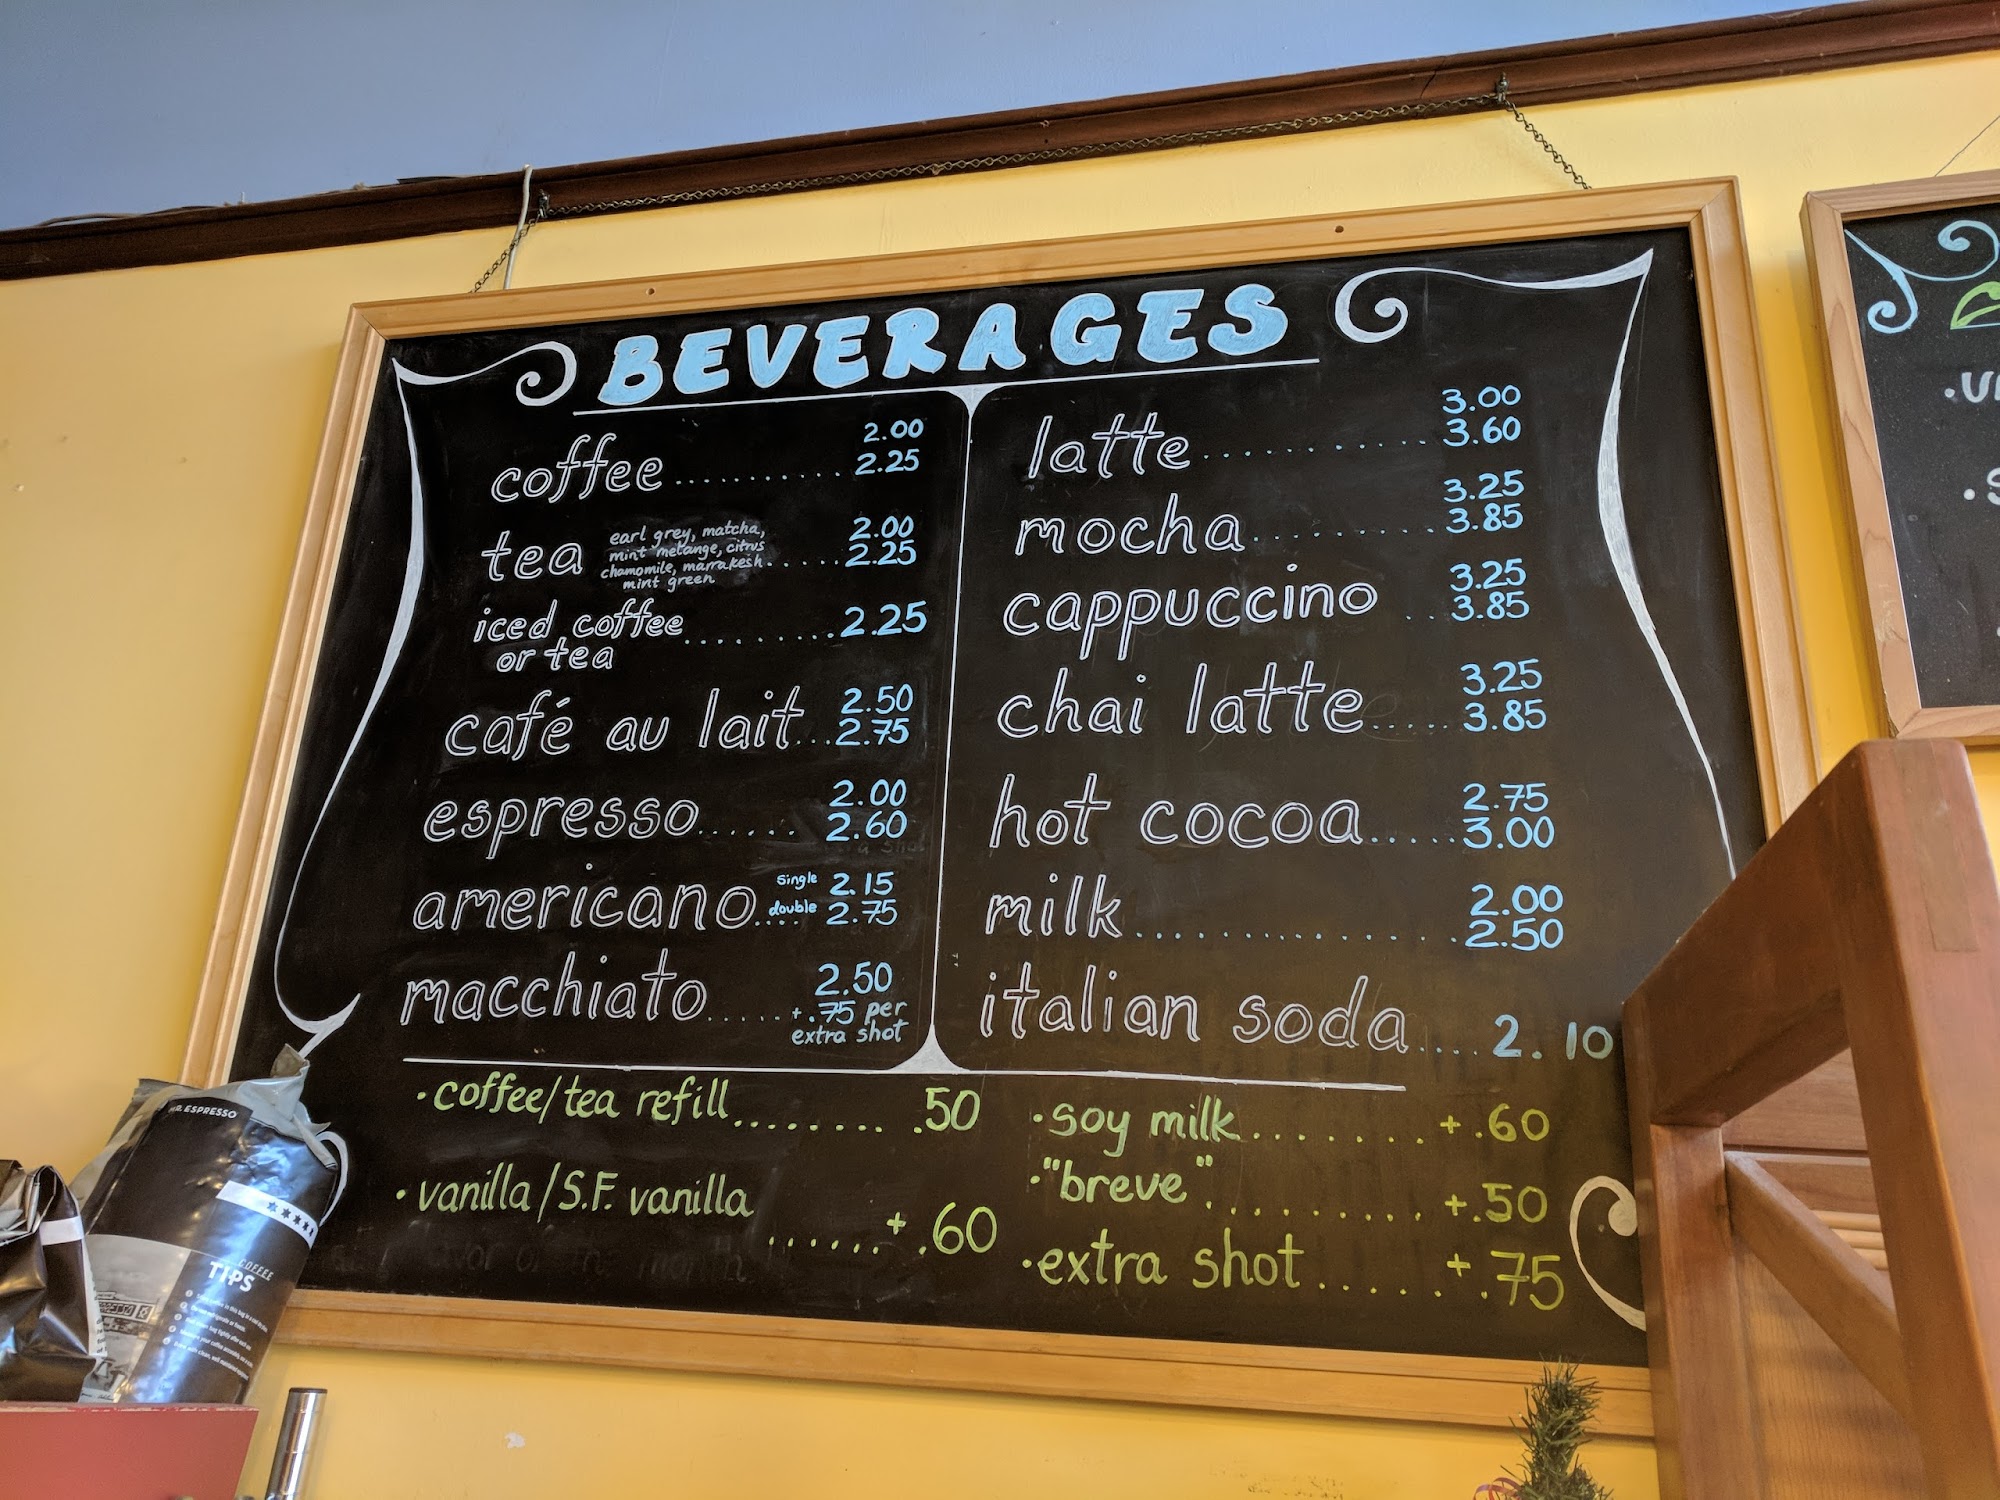 BEVERAGES
coffee ........... 2.00
2.25
tea earl grey, matcha,
mint melange, citrus
chamomile, marrakesh
mint green ...... 2.00
2.25
iced coffee
or tea ......... 2.25
café au lait ... 2.50
2.75
espresso ...... 2.00
2.60
americano .... single 2.15
double 2.75
macchiato ..... 2.50
+.75 per
extra shot
latte ............ 3.00
3.60
mocha .......... 3.25
3.85
cappuccino .. 3.25
3.85
chai latte ..... 3.25
3.85
hot cocoa ..... 2.75
3.00
milk .............. 2.00
2.50
italian soda .... 2.10
•coffee/tea refill ........ .50
•vanilla/S.F. vanilla
...... + .60
•soy milk .......... +.60
•"breve" .......... +.50
•extra shot ...... + .75
MR. ESPRESSO
COFFEE
TIPS